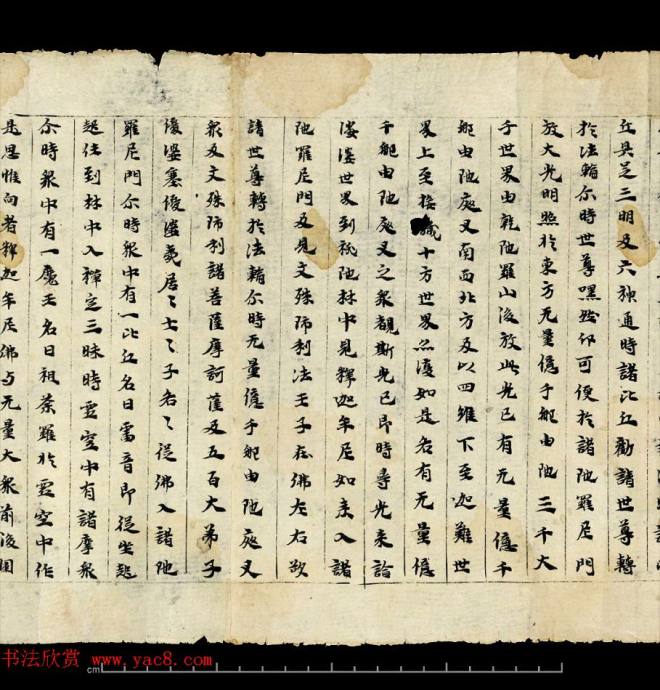 丘具足三明及六独通時諸比丘勸請世尊轉
於法輪尒時世尊嘿然印可便於諸陁羅尼門
放大光明照於東方无量億千那由他三千大
千世界由乾陁羅山後放此光已有无量億千
那由他夜叉南西北方及以四維下至迦難世
界上至樓軄十方世界忽復如是各有无量億
千那由他夜叉之衆覩斯光已即時尋光来詣
娑婆世界到祇陁林中見釋迦牟尼如来入諸
陁羅尼門及見文殊師利法王子在佛左右欲
請世尊轉於法輪尒時无量億千那由他夜叉
衆及文殊師利諸菩薩摩訶薩及五百大弟子
優婆塞優婆夷居〻士〻子各〻從佛入諸陁
羅尼門尒時衆中有一比丘名曰雷音即從坐起
起往到林中入禪定三昧時虛空中有諸摩衆
尒時衆中有一魔王名曰祖荼羅於虛空中作
是思惟向者釋迦牟尼佛与无量大衆前後圍
书法欣赏 www.yac8.com
cm